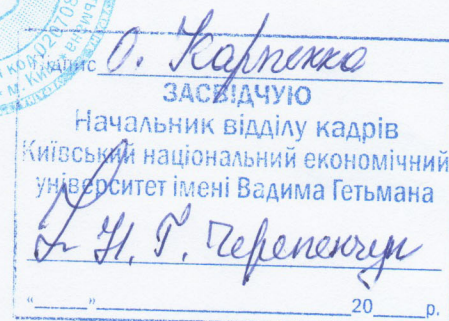 підпис О. Карпенка
ЗАСВІДЧУЮ
Начальник відділу кадрів
Київський національний економічний
університет імені Вадима Гетьмана
Н. Г. Черепенчук
"___"__________20____р.